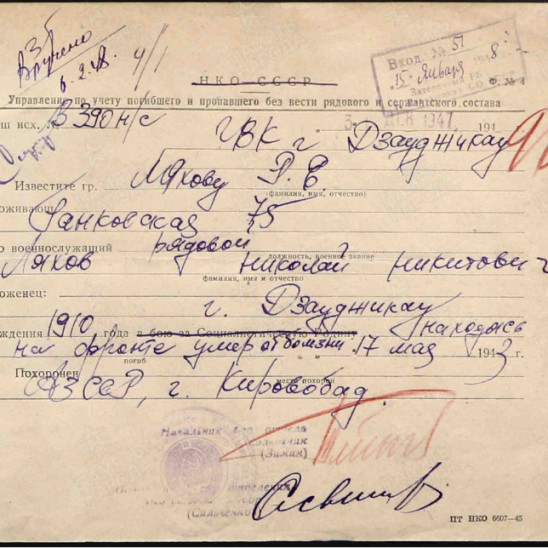 Вручено
6.2.48.
4/1
Вход. № 51
15 Января 1948
НКО СССР
Ф. № 4
Управление по учету погибшего и пропавшего без вести рядового и сержантского состава
аш исх. В 390н/с
1947 194
ГВК г Дзауджикау
Известите гр. Ляхову Р. Е.
(фамилия, имя, отчество)
роживающ
Ганковская 75
о военнослужащий рядовой
должность, военное звание
Ляхов Николай Никитович
фамилия, имя и отчество
роженец:
г. Дзауджикау
ждения 1910 года в бою за Социалистическую Родину находясь
на фронте умер от болезни 17 мая 1943 г.
погиб
Похоронен АзССР, г. Кировобад.
место похорон
Начальник отдела
полковник
(Зимин)
ПТ НКО 6607—45